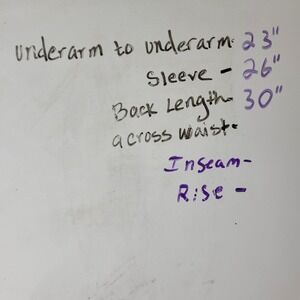 underarm to underarm- 23"
Sleeve - 26"
Back Length- 30"
across waist-
Inseam-
Rise -